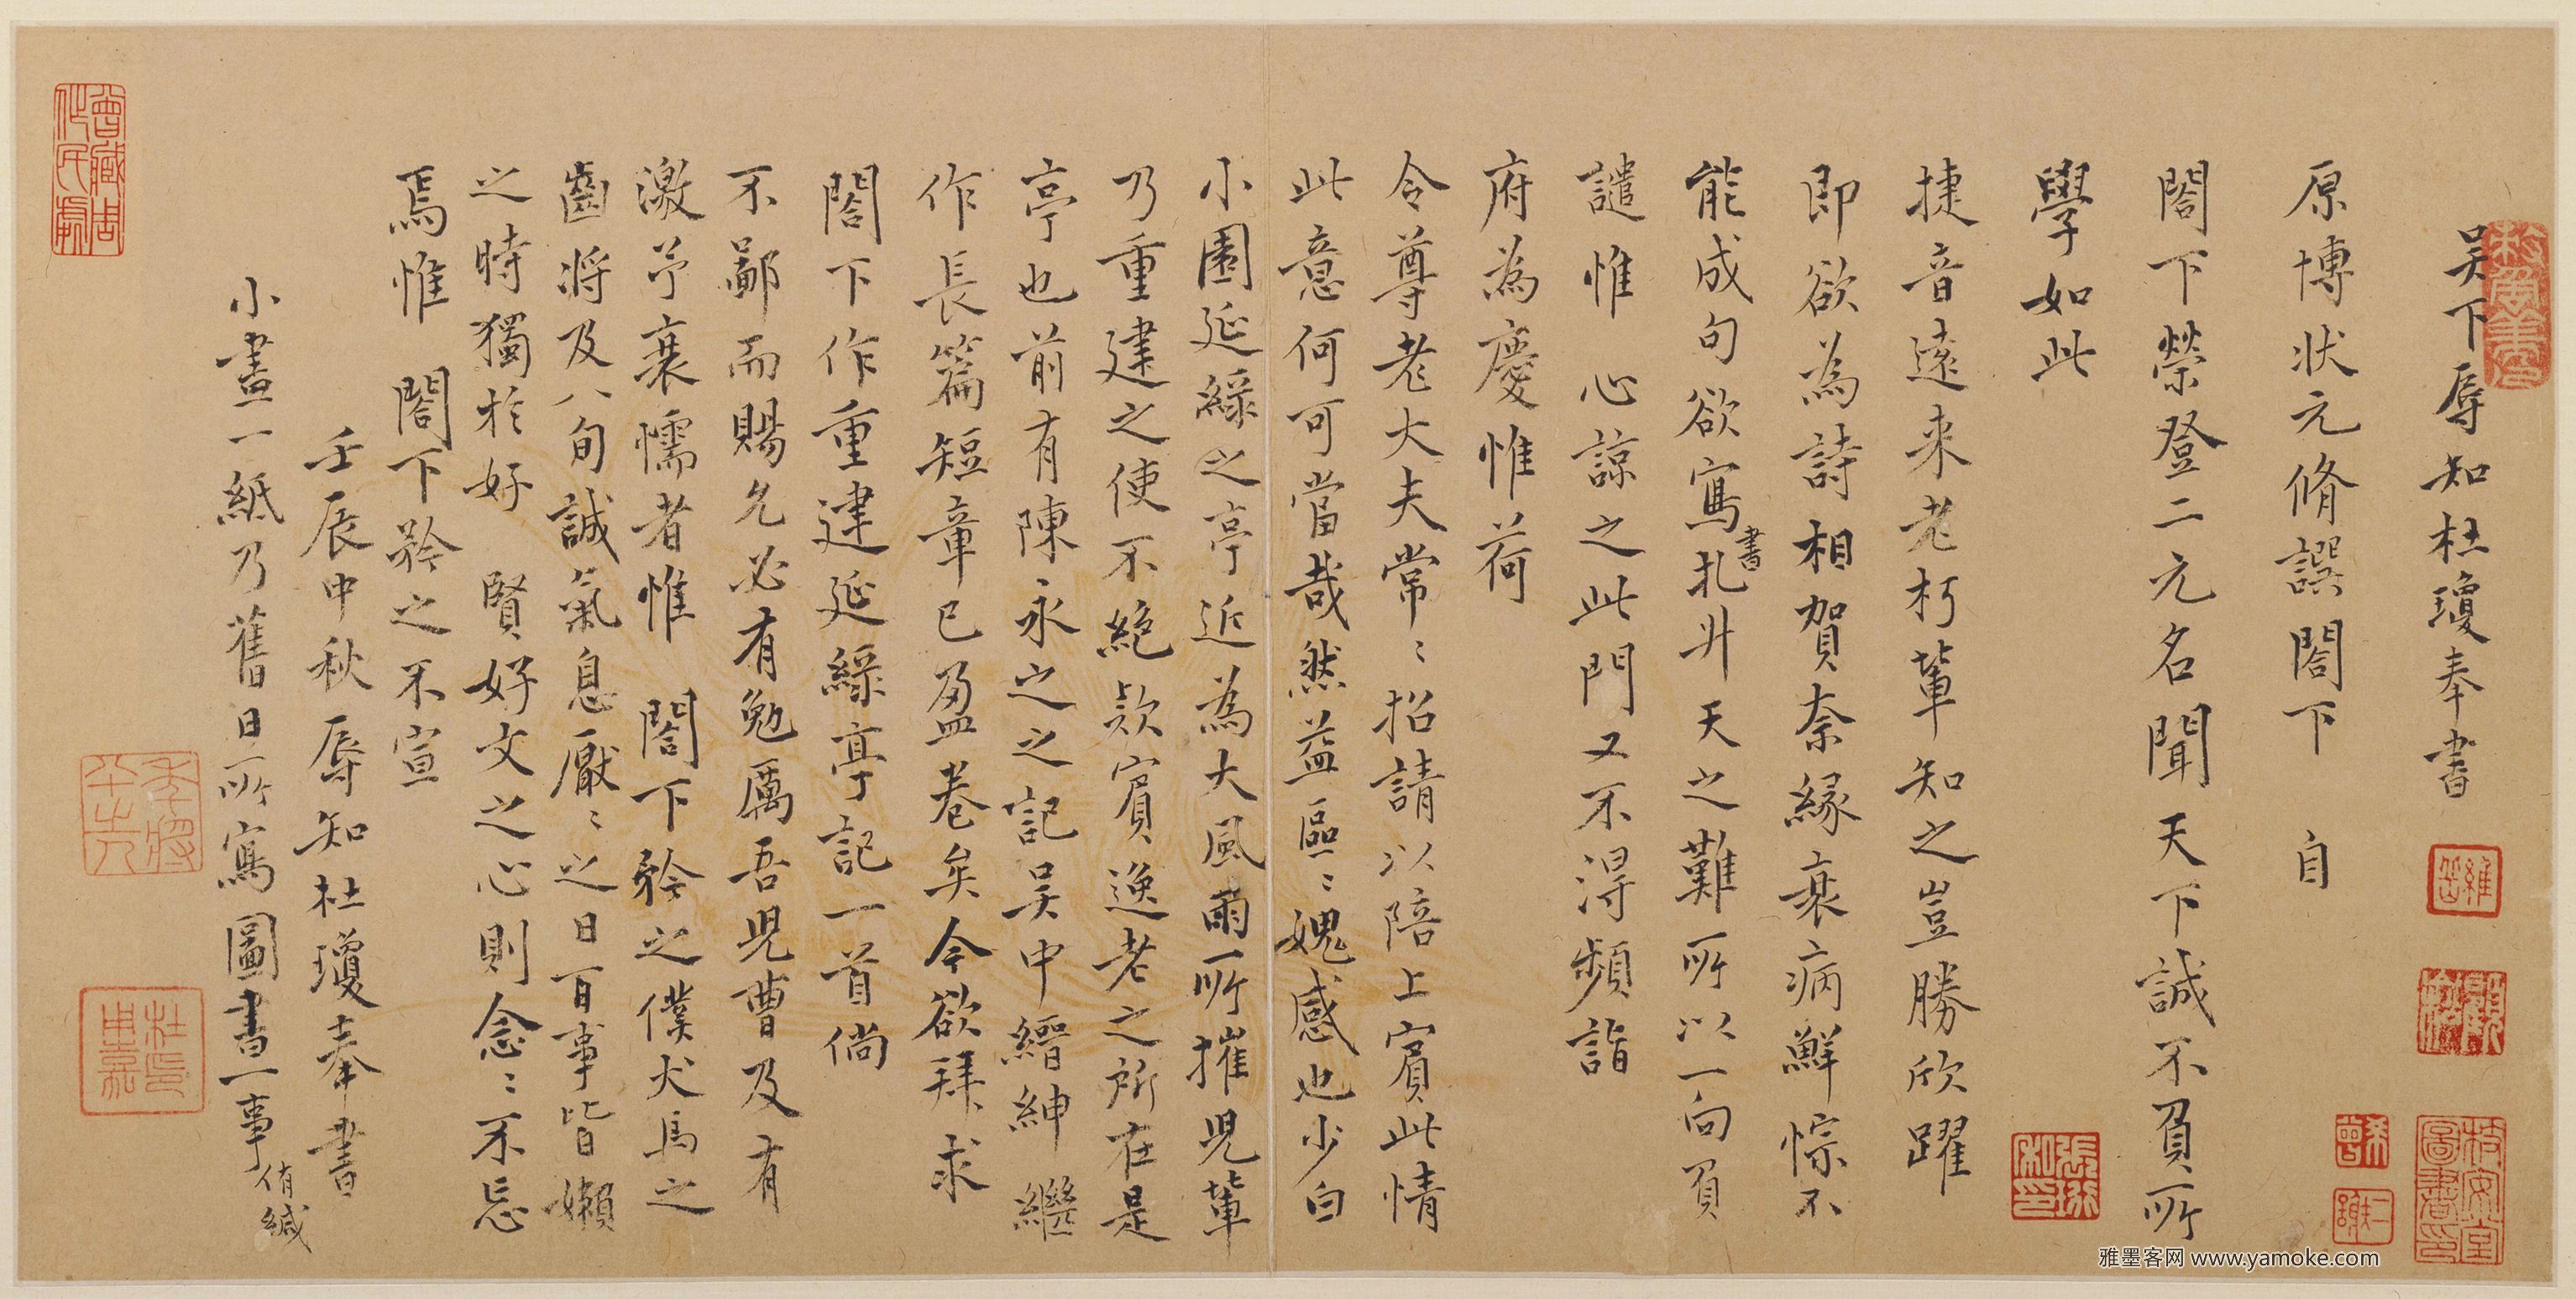 吴下辱知杜瓊奉書
原博状元脩譔閤下　自
閤下榮登二元名聞天下誠不負所
學如此
捷音遠来老朽軰知之豈勝欣躍
即欲為詩相賀奈緣衰病鮮悰不
能成句欲寫書扎升天之難所以一向負
譴惟心諒之此門又不得頻詣
府為慶惟荷
令尊老大夫常〻招請以陪上賔此情
此意何可當哉然益區〻媿感也少白
小園延綠之亭近為大風雨所摧児軰
乃重建之使不絶欵賔逸老之所在是
亭也前有陳永之之記吴中縉紳繼
作長篇短章已盈卷矣今欲拜求
閤下作重建延綠亭記一首倘
不鄙而賜允必有勉厲吾児曹及有
激予衰懦者惟　閤下矜之僕犬馬之
齒将及八旬誠氣息厭〻之日百事皆嬾
之時獨於好　賢好文之心則念〻不忘
焉惟　閤下矜之不宣
壬辰中秋辱知杜瓊奉書
小畫一紙乃舊日所寫圖書一事侑緘
雅墨客网 www.yamoke.com